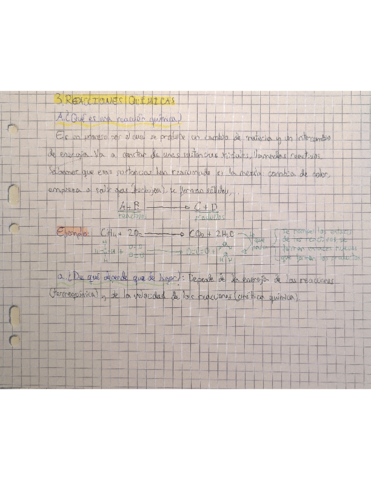 3. REACCIONES QUÍMICAS
A. ¿Qué es una reacción química?
Es un proceso por el cual se produce un cambio de materia y un intercambio
de energía. Va a partir de unas sustancias iniciales, llamadas reactivos
Sabemos que esas sustancias han reaccionado si la mezcla cambia de color,
empieza a salir gas (burbujas), se forman sólidos,
A + B → C + D
reactivos productos
Ejemplo: CH4 + 2O2 → CO2 + 2H2O
a. ¿De qué depende que se hagan?: Depende de la energía de las reacciones
(termoquímica) y de la velocidad de las reacciones (cinética química)